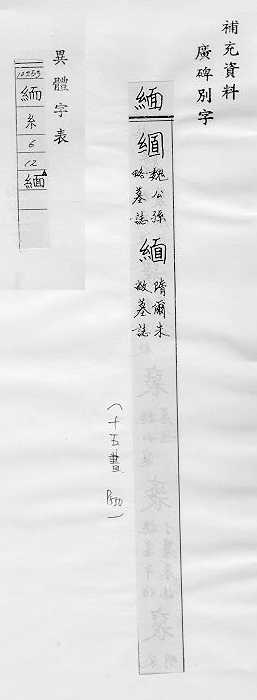 補充資料
廣碑別字
緬
緬
魏公孫
略墓誌
緬
隋爾朱
敏墓誌
(十五畫 P550)
異體字表
10253
緬
糸
6
12
緬